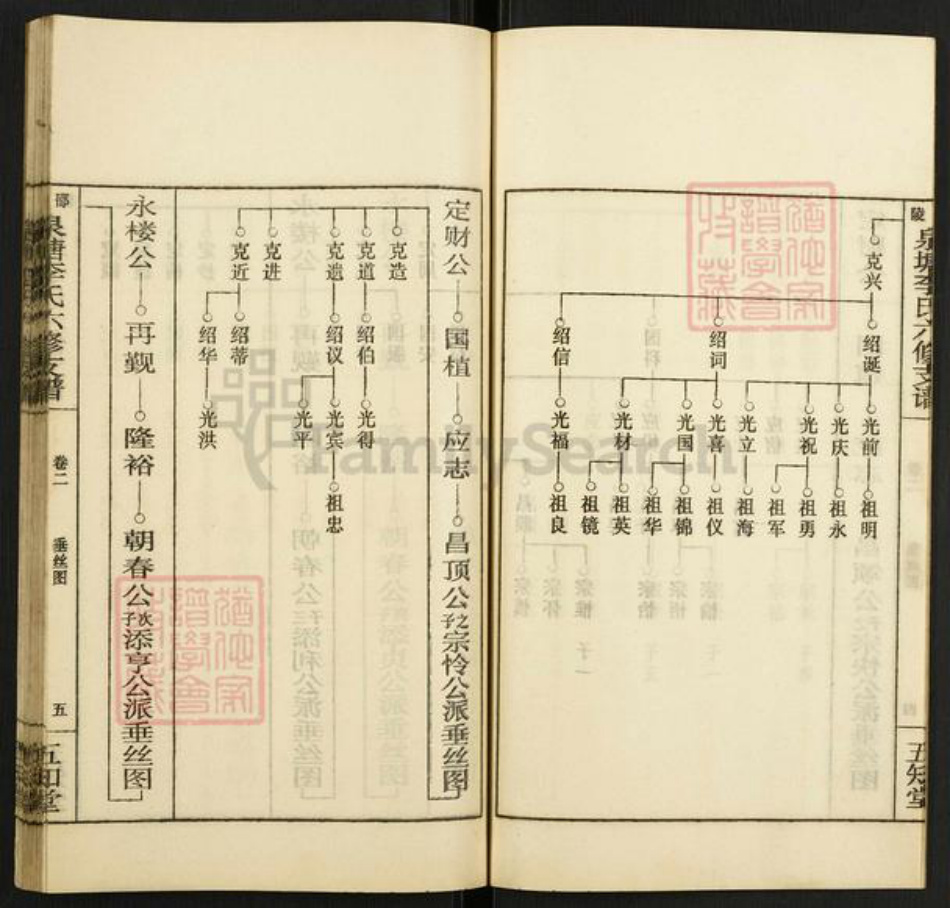 陵
泉塘李氏六修支谱
五知堂
克兴
绍诞
绍词
绍信
光前
光庆
光祝
光立
光喜
光国
光材
光福
祖明
祖永
祖勇
祖军
祖海
祖仪
祖锦
祖华
祖英
祖镜
祖良
定财公
国植
应志
昌顶公之子宗怜公派垂丝图
克造
克道
克遗
克进
克近
绍伯
绍议
绍蒂
绍华
光得
光宾
光平
光洪
祖忠
永楼公
再觐
隆裕
朝春公次子添亨公派垂丝图
邵
泉塘李氏六修支谱
卷二
垂丝图
五
五知堂
FamilySearch